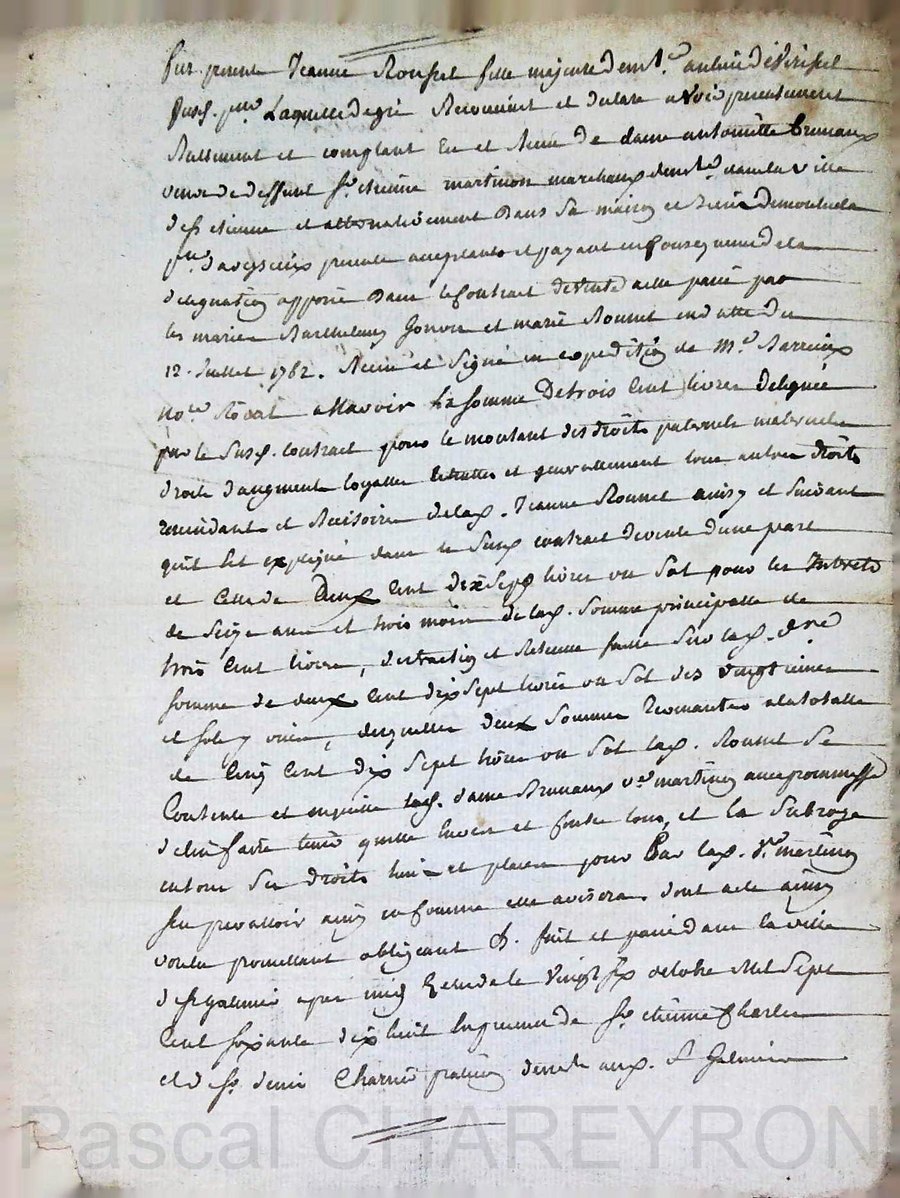 fut presente Jeanne Rousset fille majeure demt. au lieu de Viricel
susd. pnse. Laquelle de gré Reconnoit et declare avoir presentement
Reellement et comptant Eu et Receu de dame antoinette Brunaux
veuve de deffunt sr. etienne martinon marchand demte. dans la ville
de st etienne et alternativement Dans Sa maison et
pnse. d'aveyzieux presente acceptante et payant en Consequence de la
delegation apposée Dans le Contrat de vente a elle passé par
les mariés Barthelemy Gonon et marie Rousset en datte du
12. Juillet 1762. Receu et Signé en expedition de Me. Barrieux
Nore. Roial assavoir La Somme De trois Cent livres deleguée
par le Susd. Contrat pour le montant des droits paternels maternels
droits d'augment loyalles Echuttes et generallement tous autres droits
rescindants et Rescisoires de lad. Jeanne Rousset ainsy et Suivant
quil Est expliqué dans le Susd. contrat de vente dune part
et Celle de Deux Cent dix Sept livres un Sol pour les Interets
de Seize ans et trois mois de lad. Somme principalle de
trois Cent livres, distraction et Retenue faitte Sur lad. dre.
Somme de deux Cent dix Sept livres un Sol des vingtiemes
et Sols y unis, desquelles deux Sommes Revenantes a la totalle
de Cinq Cent dix Sept livres un Sol lad. Rousset Se
Contente et enquitte lad. dame Brunaux ve. martinon avec promesse
de l'en faire tenir quitte Envers et Contre tous, et la Subroge
en tous Ses droits lieu et place pour Par lad. ve. martinon
Sen prevalloir ainsy et Comme elle avisera dont acte ainsy
voulu promettant obligeant &. fait et passé dans la ville
de st galmier apres midy Le vingt Six octobre Mil Sept
Cent Soixante dix huit En presence de Sr. etienne Charles
et de Sr. denis Charnié praticien demte. aud. St Galmier
Pascal CHAREYRON